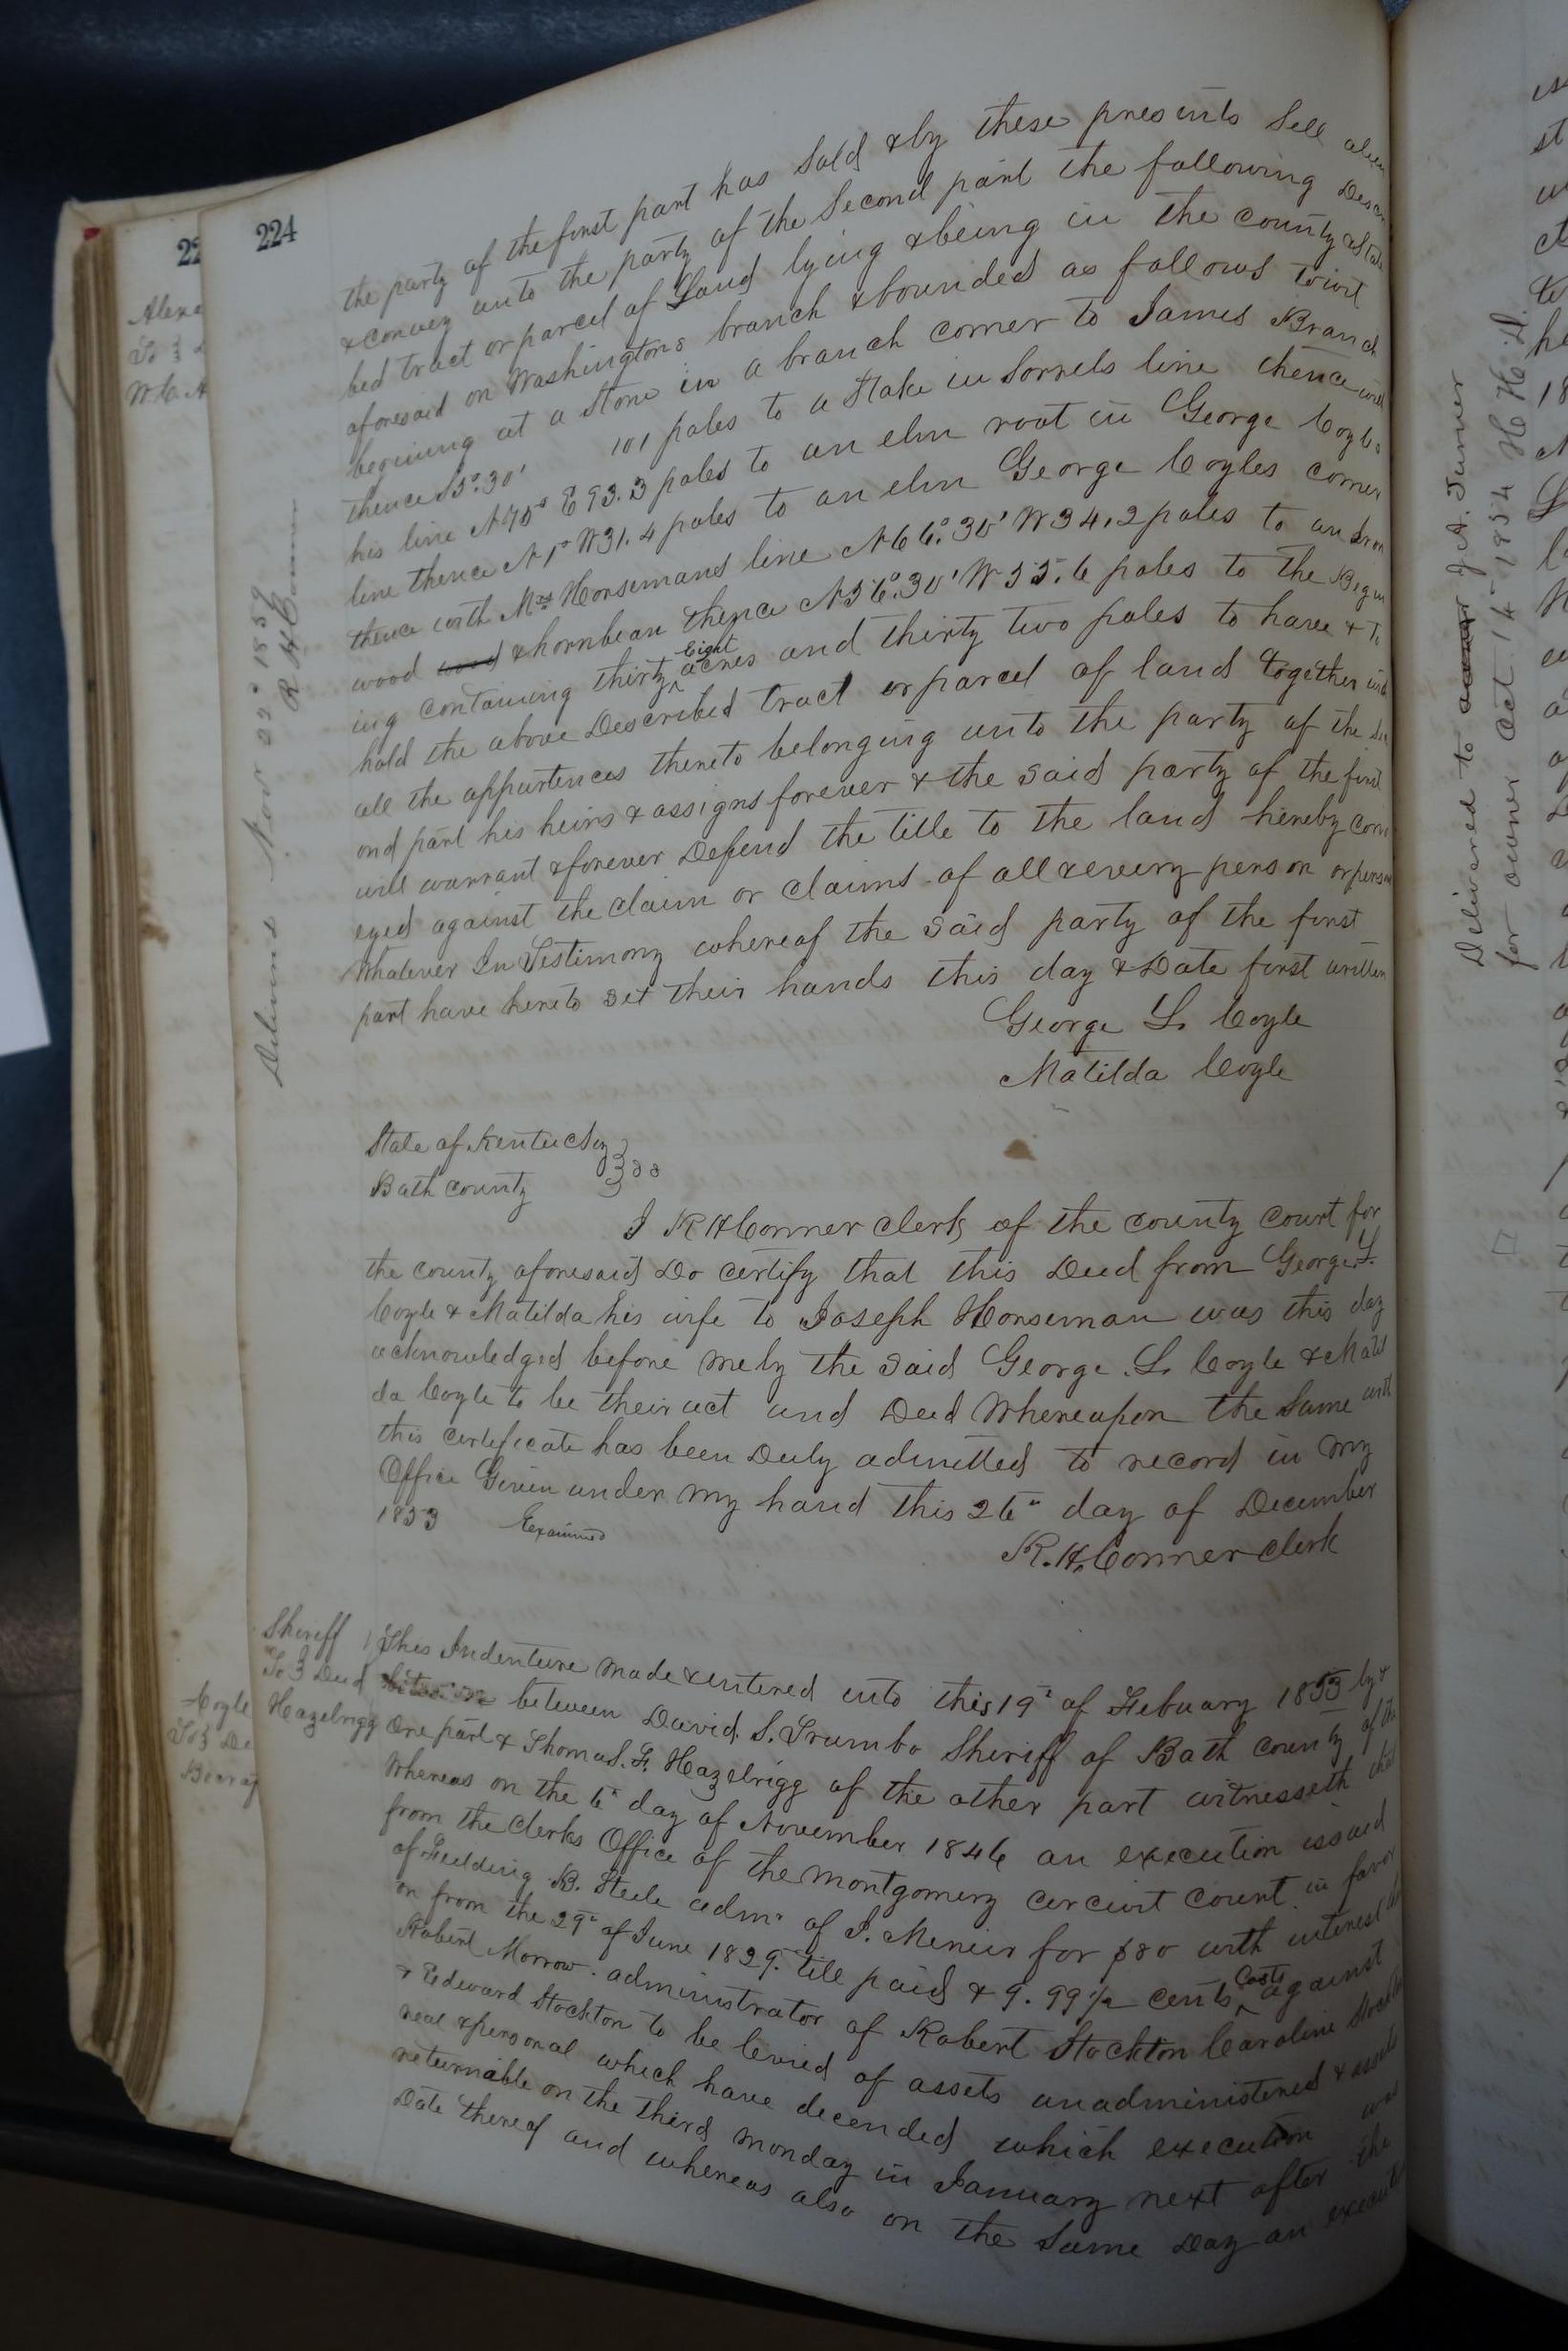 224
the party of the first part has sold & by these presents Sell alien
& convey unto the party of the Second part the following Descri
bed tract or parcel of Land lying & being in the county & State
aforesaid on Washingtons branch & bounded as follows towit
begining at a Stone in a branch corner to James Branch
thence S5°.30' 101 poles to a Stake in Sorrels line thence with
his line N70° E93.3 poles to an elm root in George Coyles
line thence N1° W31.4 poles to an elm George Coyles corner
thence with Mrs Horsemans line N66°.30' W34.2 poles to an Iron
wood wood & hornbean thence N56°.30' W55.6 poles to the Begin
ing containing thirty Eight acres and thirty two poles to have & To
hold the above Described tract or parcel of land together with
all the appurtences thereto belonging unto the party of the Sec
ond part his heirs & assigns forever & the said party of the first
will warrant & forever Defend the title to the land hereby conv
eyed against the claim or claims of all & every person or person
Whatever In Testimony whereof the said party of the first
part have hereto set their hands this day & Date first written
George L. Coyle
Matilda Coyle
State of Kentucky
Bath county } ss
I R H Conner clerk of the county court for
the county aforesaid Do certify that this Deed from George L.
Coyle & Matilda his wife to Joseph Horseman was this day
acknowledged before me by the said George L. Coyle & Matil
da Coyle to be their act and Deed Whereupon the Same with
this certificate has been Duly admitted to record in my
Office Given under my hand this 26" day of December
1853 Examined
R. H. Conner clerk
Sheriff
To } Deed
Hazelrigg
This Indenture made & entered into this 19" of Febuary 1853 by &
between David. S. Trumbo Sheriff of Bath county of the
One part & Thomas. F. Hazelrigg of the other part witnesseth that
Whereas on the 6" day of November 1846 an execution issued
from the clerks Office of the Montgomery circuit court in favor
of Fielding B. Steele admr of J. Meneir for $80 with interest there
on from the 29" of June 1829. till paid & 9.99½ cents Costs against
Robert Morrow administrator of Robert Stockton Caroline Stockton
& Edward Stockton to be levied of assets unadministered & assets
real & personal which have decended which execution was
returnable on the third monday in January next after the
Date thereof and whereas also on the Same Day an execution
Delivered Nov 22" 1859
R H Conner
Delivered to J. A. Turner
for owner Oct. 14" 1854